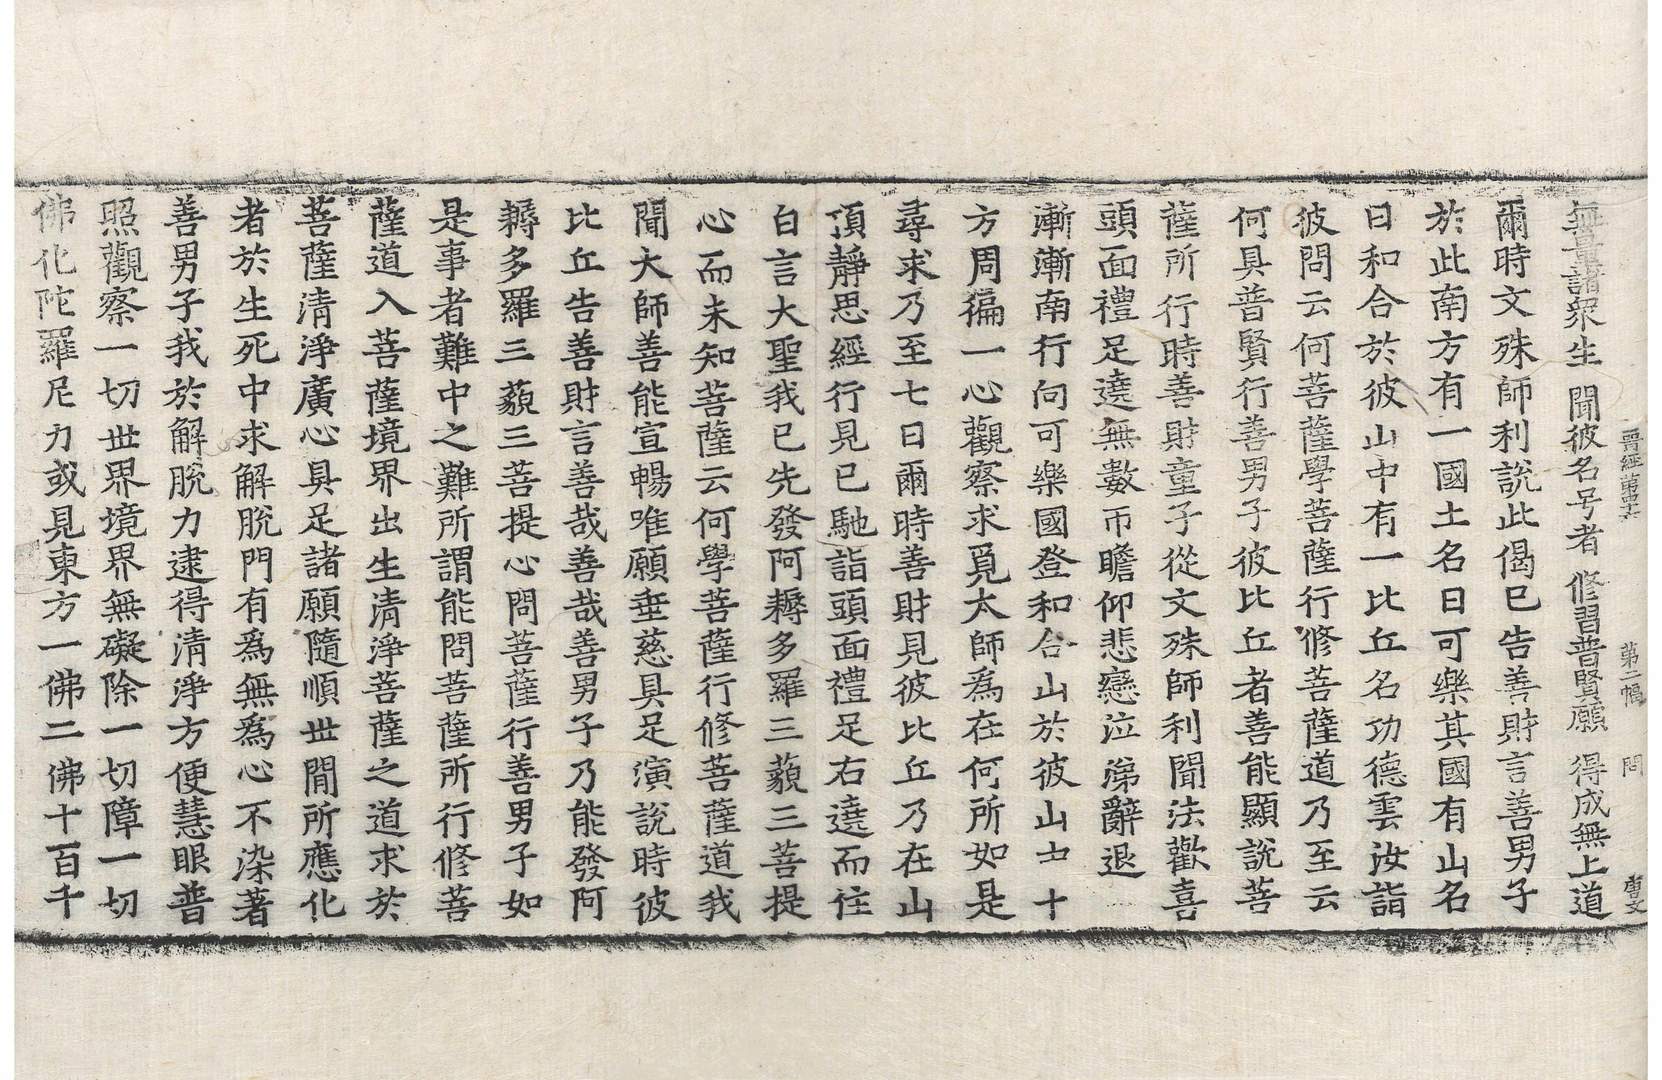 晉經第四六 第二幅 問 曹文
無量諸衆生 聞彼名号者 修習普賢願 得成無上道
爾時文殊師利說此偈已告善財言善男子
於此南方有一國土名曰可樂其國有山名
曰和合於彼山中有一比丘名功德雲汝詣
彼問云何菩薩學菩薩行修菩薩道乃至云
何具普賢行善男子彼比丘者善能顯說菩
薩所行時善財童子從文殊師利聞法歡喜
頭面禮足遶無數帀瞻仰悲戀泣涕辭退
漸漸南行向可樂國登和合山於彼山中十
方周徧一心觀察求覓大師爲在何所如是
尋求乃至七日爾時善財見彼比丘乃在山
頂靜思經行見已馳詣頭面禮足右遶而住
白言大聖我已先發阿耨多羅三藐三菩提
心而未知菩薩云何學菩薩行修菩薩道我
聞大師善能宣暢唯願垂慈具足演說時彼
比丘告善財言善哉善哉善男子乃能發阿
耨多羅三藐三菩提心問菩薩行善男子如
是事者難中之難所謂能問菩薩所行修菩
薩道入菩薩境界出生清淨菩薩之道求於
菩薩清淨廣心具足諸願隨順世間所應化
者於生死中求解脫門有爲無爲心不染著
善男子我於解脫力逮得清淨方便慧眼普
照觀察一切世界境界無礙除一切障一切
佛化陀羅尼力或見東方一佛二佛十百千